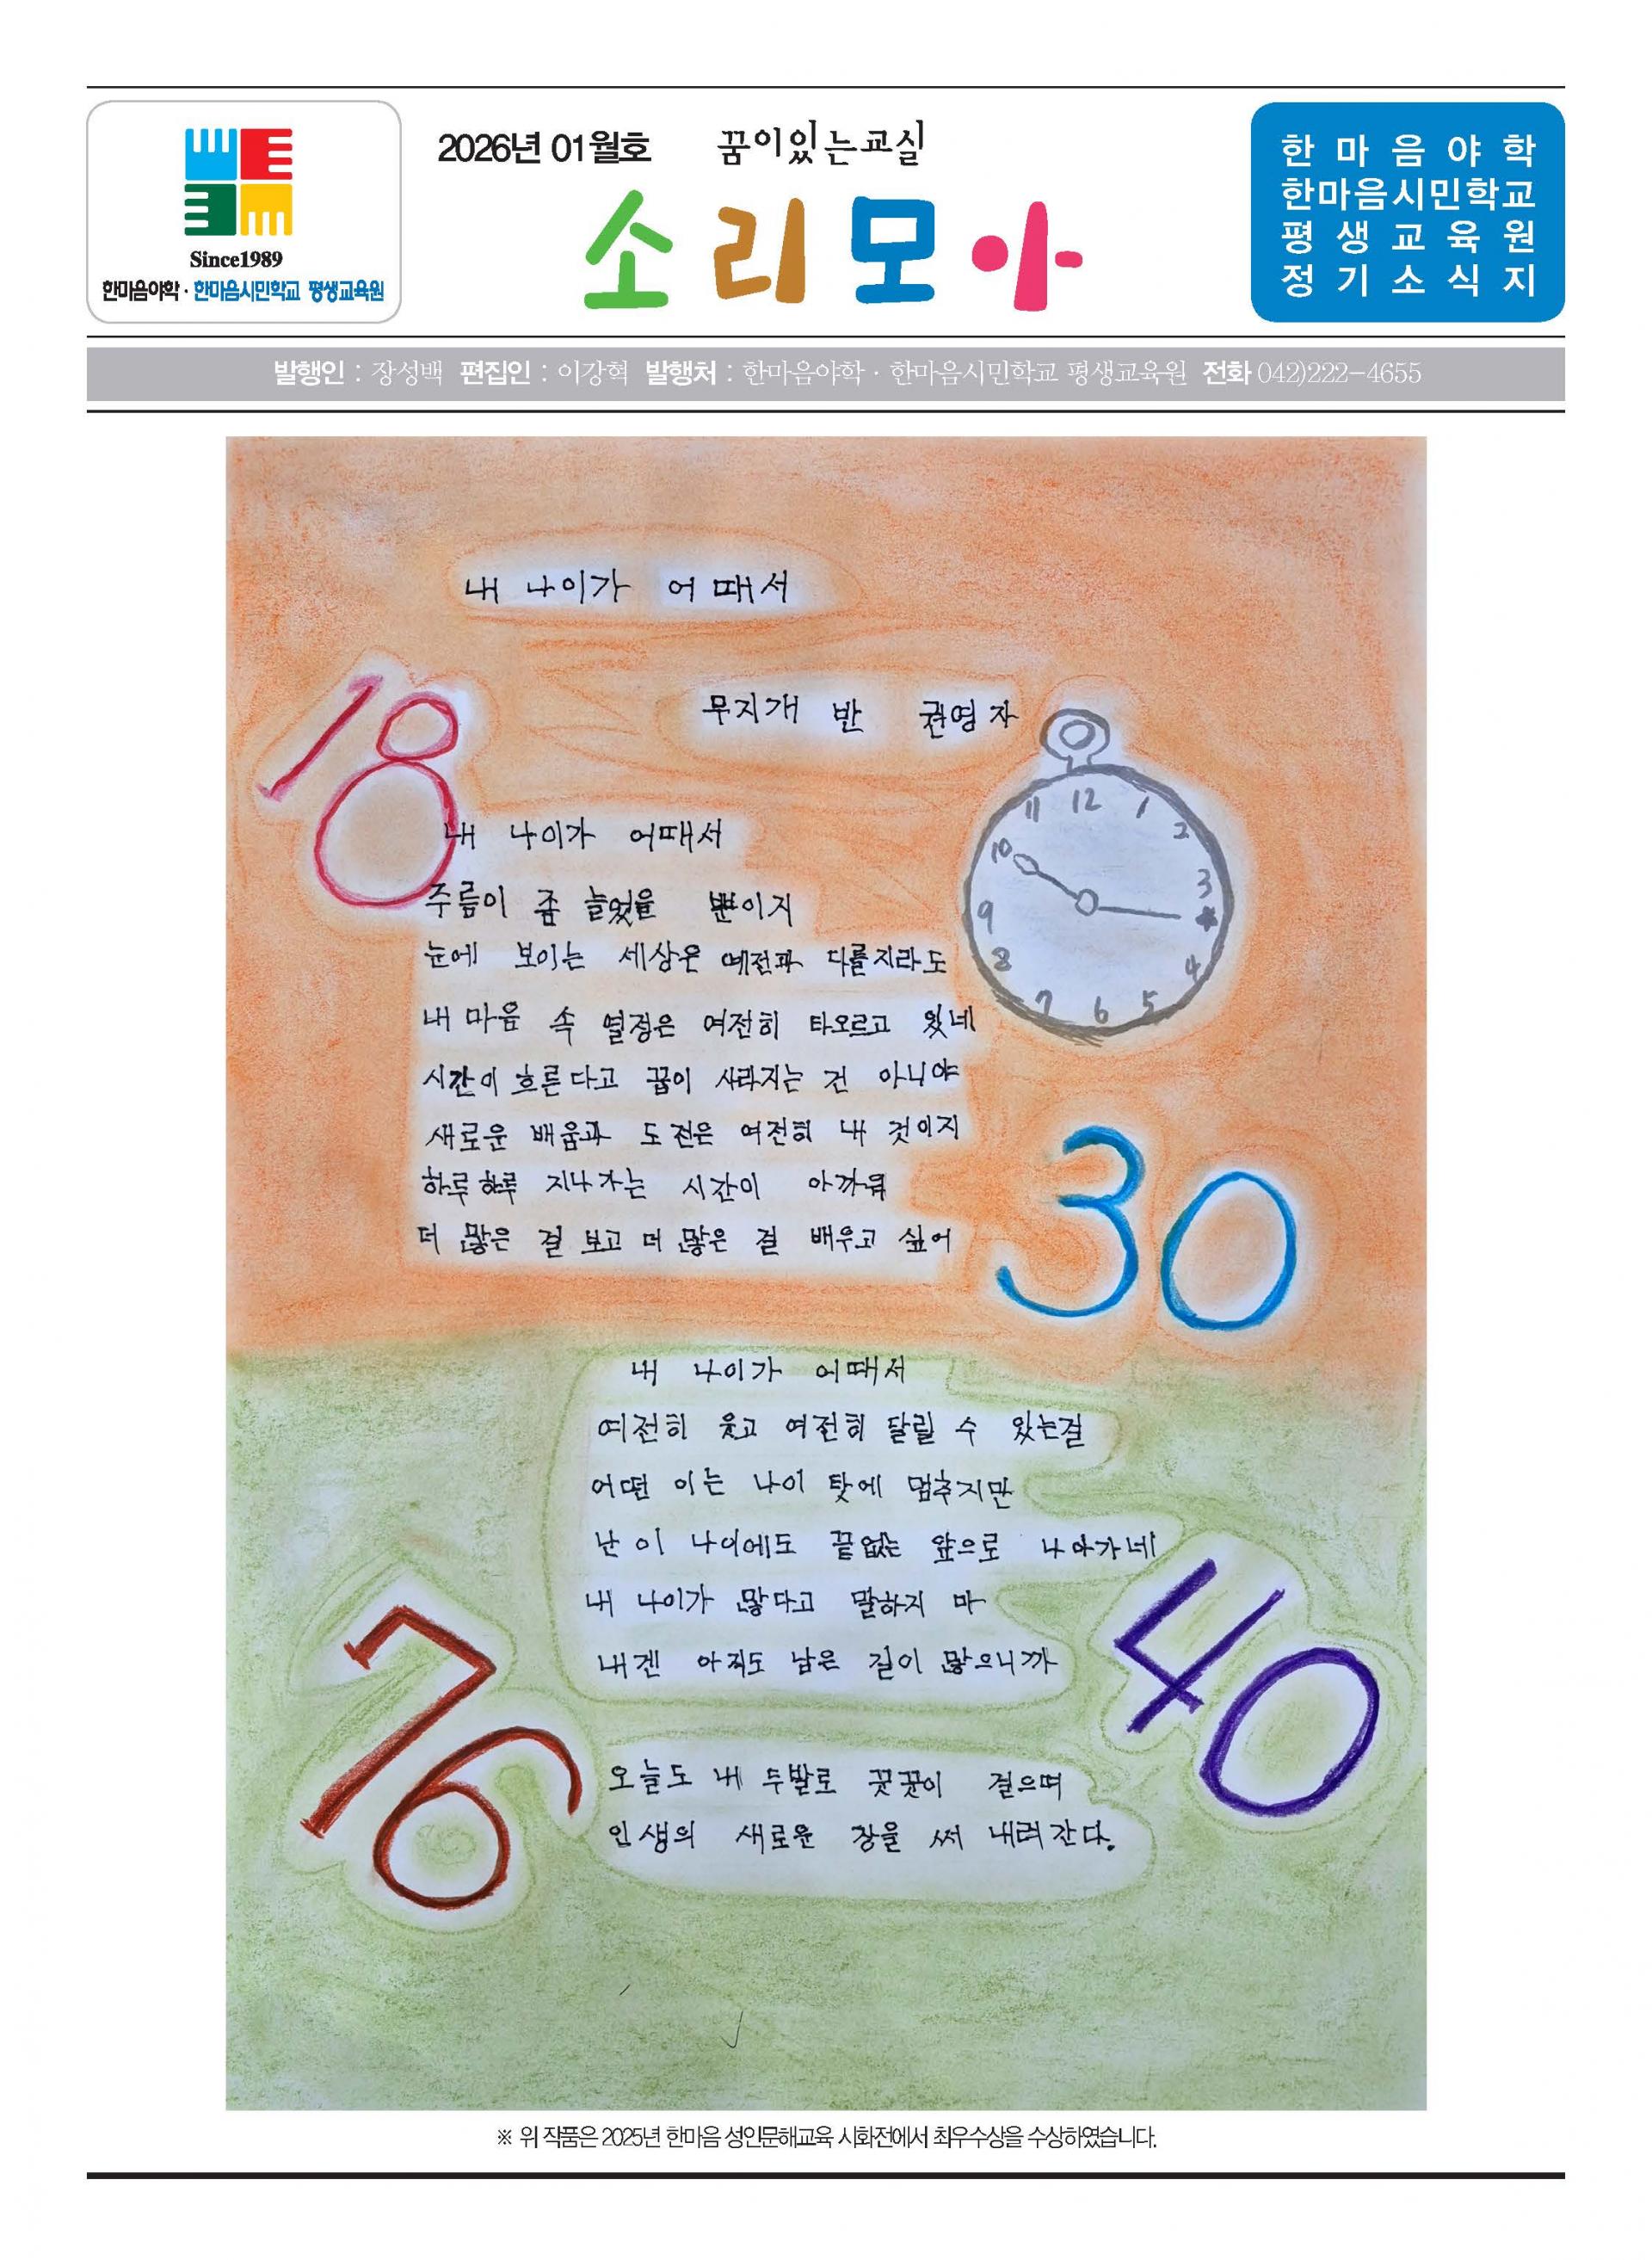 Since1989
한마음야학·한마음시민학교 평생교육원
2026년 01월호 꿈이있는교실
소리모아
한마음야학
한마음시민학교
평생교육원
정기소식지
발행인 : 장성백 편집인 : 이강혁 발행처 : 한마음야학 · 한마음시민학교 평생교육원 전화 042)222-4655
내 나이가 어때서
무지개 반 권영자
18
내 나이가 어때서
주름이 좀 늘었을 뿐이지
눈에 보이는 세상은 예전과 다를지라도
내 마음 속 열정은 여전히 타오르고 있네
시간이 흐른다고 꿈이 사라지는 건 아니야
새로운 배움과 도전은 여전히 내 것이지
하루하루 지나가는 시간이 아까워
더 많은 걸 보고 더 많은 걸 배우고 싶어
11 12 1
10 2
9 3
8 4
7 6 5
30
내 나이가 어때서
여전히 웃고 여전히 달릴 수 있는걸
어떤 이는 나이 탓에 멈추지만
난 이 나이에도 끝없는 앞으로 나아가네
내 나이가 많다고 말하지 마
내겐 아직도 남은 길이 많으니까
40
76
오늘도 내 두발로 꿋꿋이 걸으며
인생의 새로운 장을 써 내려간다.
※ 위 작품은 2025년 한마음 성인문해교육 시화전에서 최우수상을 수상하였습니다.